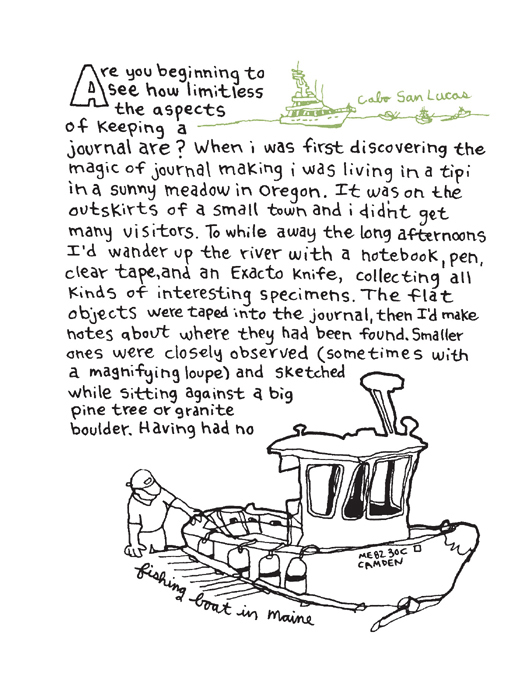 Are you beginning to
see how limitless
the aspects
of keeping a
journal are? When i was first discovering the
magic of journal making i was living in a tipi
in a sunny meadow in Oregon. It was on the
outskirts of a small town and i didn't get
many visitors. To while away the long afternoons
I'd wander up the river with a notebook, pen,
clear tape, and an Exacto knife, collecting all
kinds of interesting specimens. The flat
objects were taped into the journal, then I'd make
notes about where they had been found. Smaller
ones were closely observed (sometimes with
a magnifying loupe) and sketched
while sitting against a big
pine tree or granite
boulder. Having had no
Cabo San Lucas
ME82 30C
CAMDEN
fishing boat in Maine